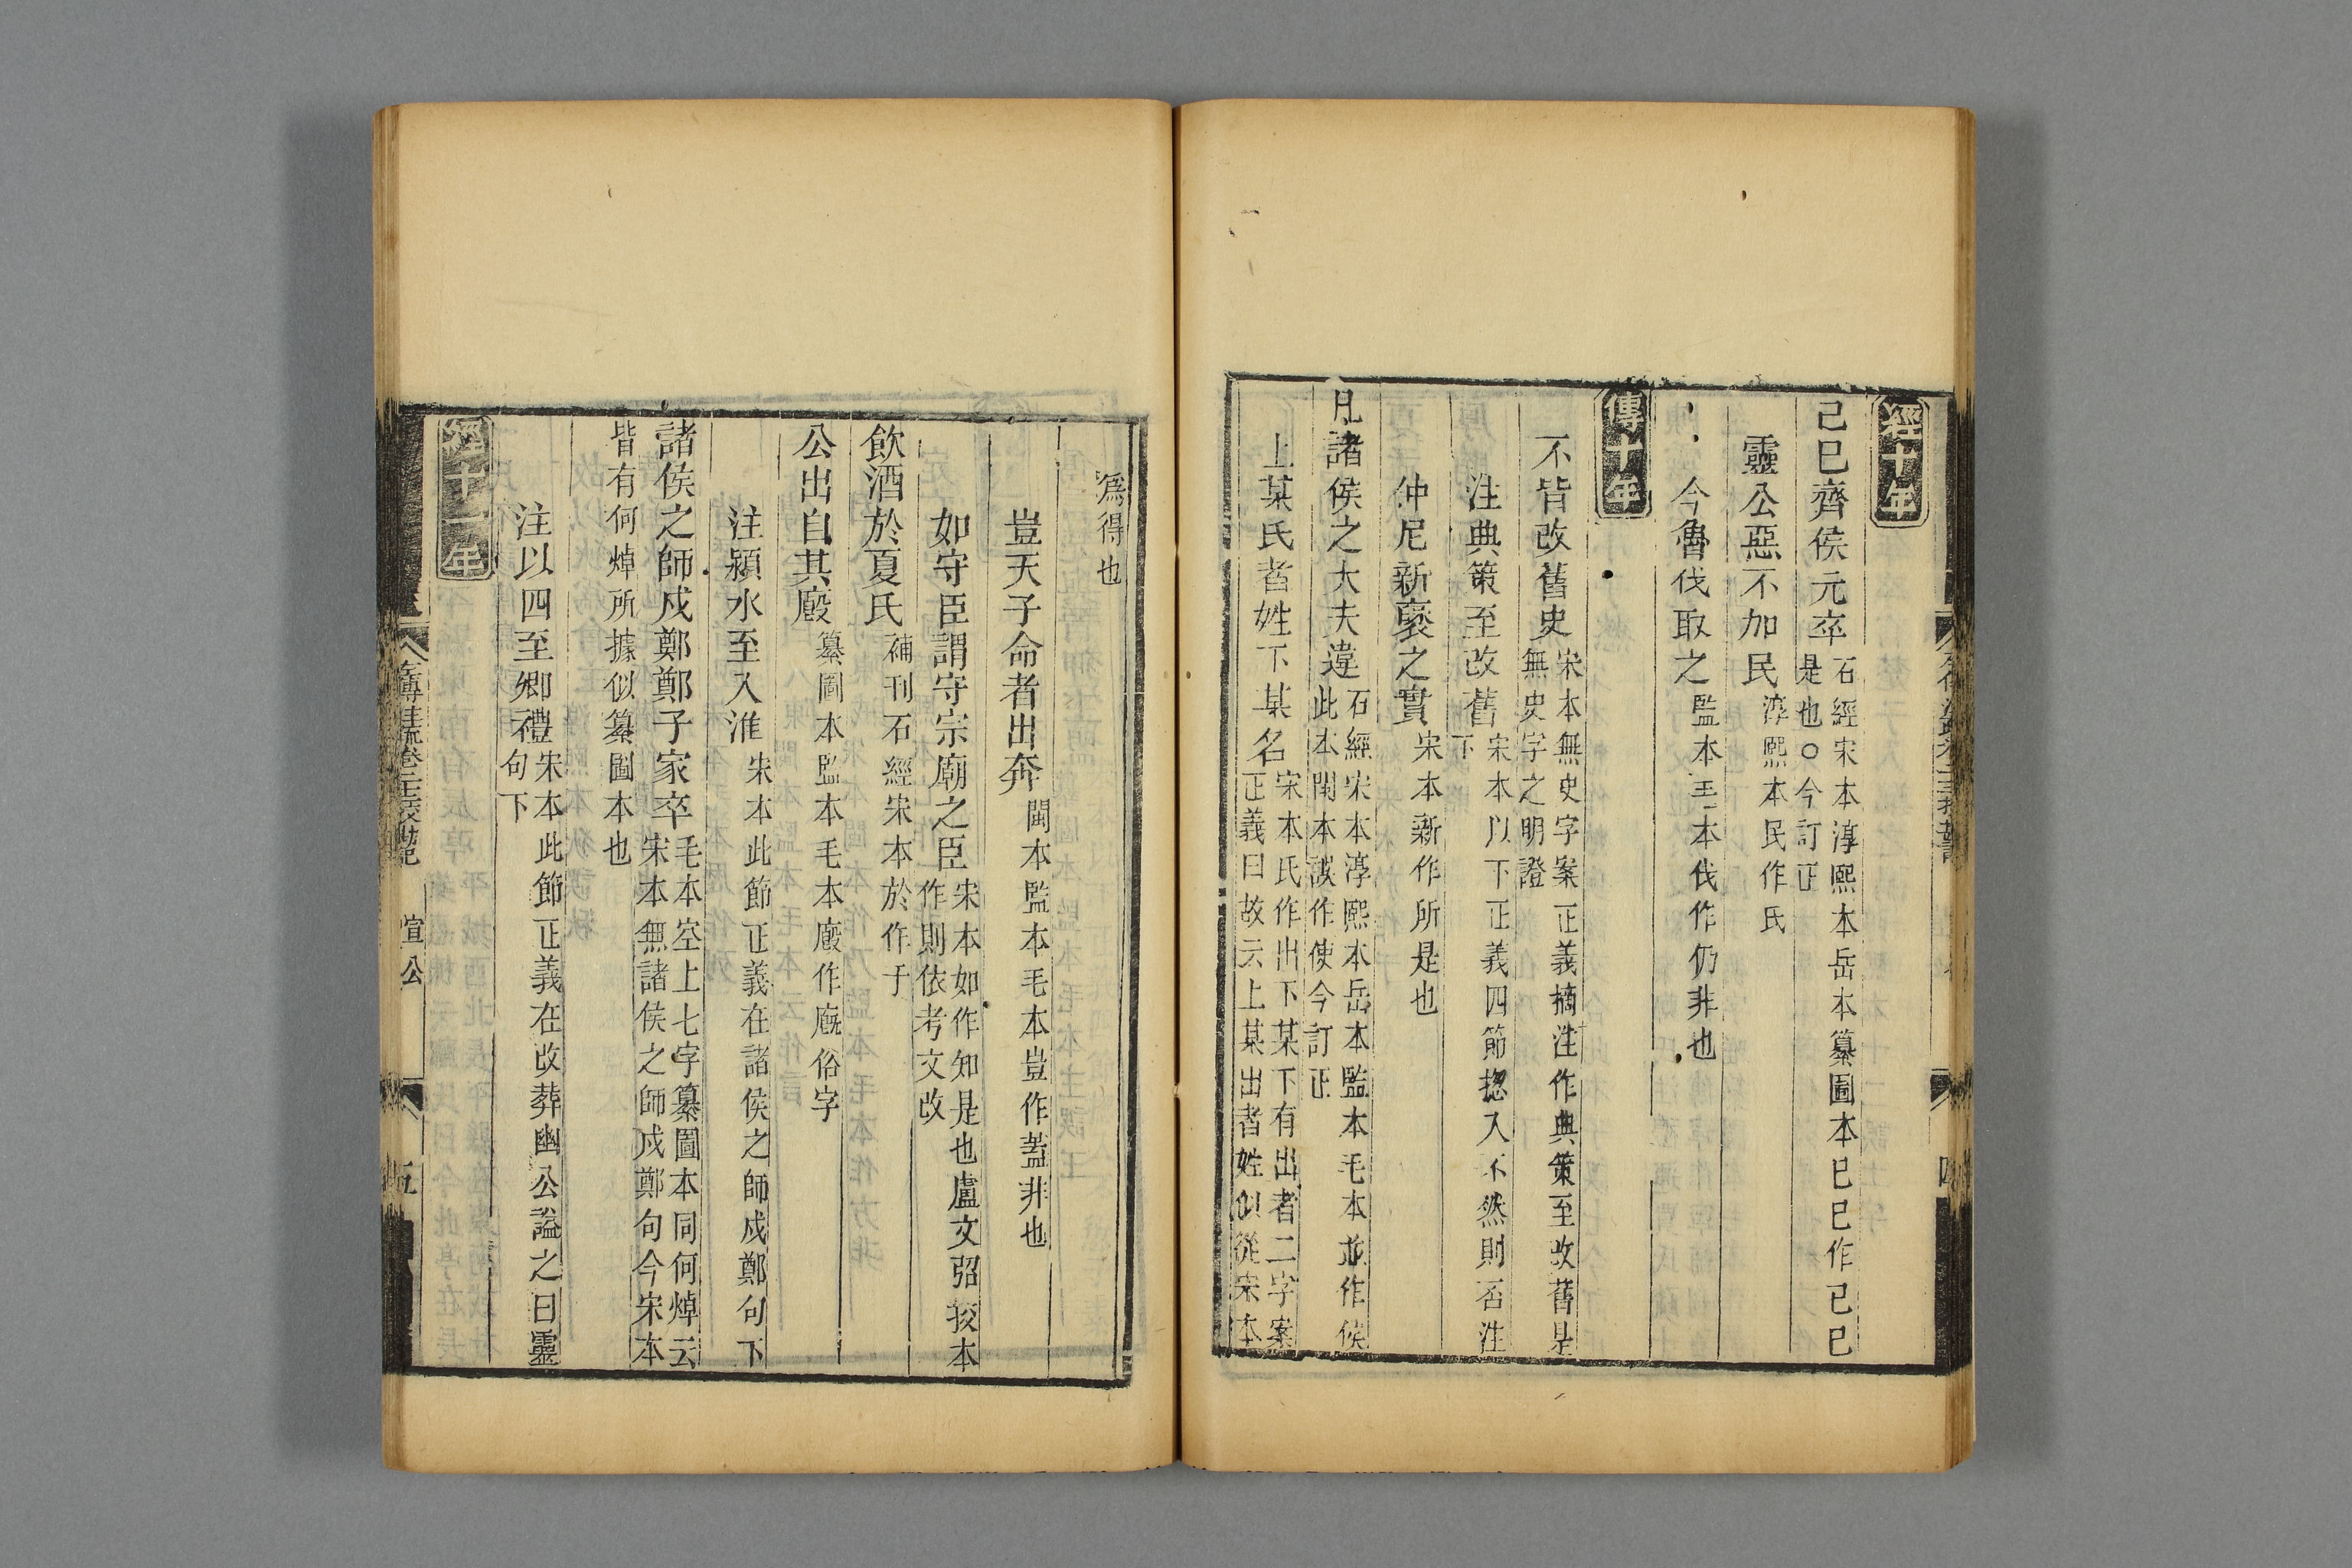 經十年
己巳齊侯元卒石經宋本淳熙本岳本纂圖本巳巳作己巳
是也○今訂正
靈公惡不加民淳熙本民作氏
今魯伐取之監本毛本伐作仍非也
傳十年
不皆改舊史宋本無史字案正義摘注作典策至改舊是
無史字之明證
注典策至改舊宋本以下正義四節揔入不然則否注
下
仲尼新襃之實宋本新作所是也
凡諸侯之大夫違石經宋本淳熙本岳本監本毛本並作侯
此本閩本誤作使今訂正
上某氏者姓下某名宋本氏作出下某下有出者二字案
正義曰故云上某出者姓似從宋本
爲得也
豈天子命者出奔閩本監本毛本豈作蓋非也
如守臣謂守宗廟之臣宋本如作知是也盧文弨挍本
作則依考文改
飲酒於夏氏補刊石經宋本於作于
公出自其廄纂圖本監本毛本廄作廐俗字
注潁水至入淮宋本此節正義在諸侯之師戍鄭句下
諸侯之師戍鄭鄭子家卒毛本空上七字纂圖本同何焯云
宋本無諸侯之師戍鄭句今宋本
皆有何焯所據似纂圖本也
注以四至卿禮宋本此節正義在改葬幽公謚之曰靈
句下
經十一年
左傳注疏卷二十二挍勘記
宣公
五